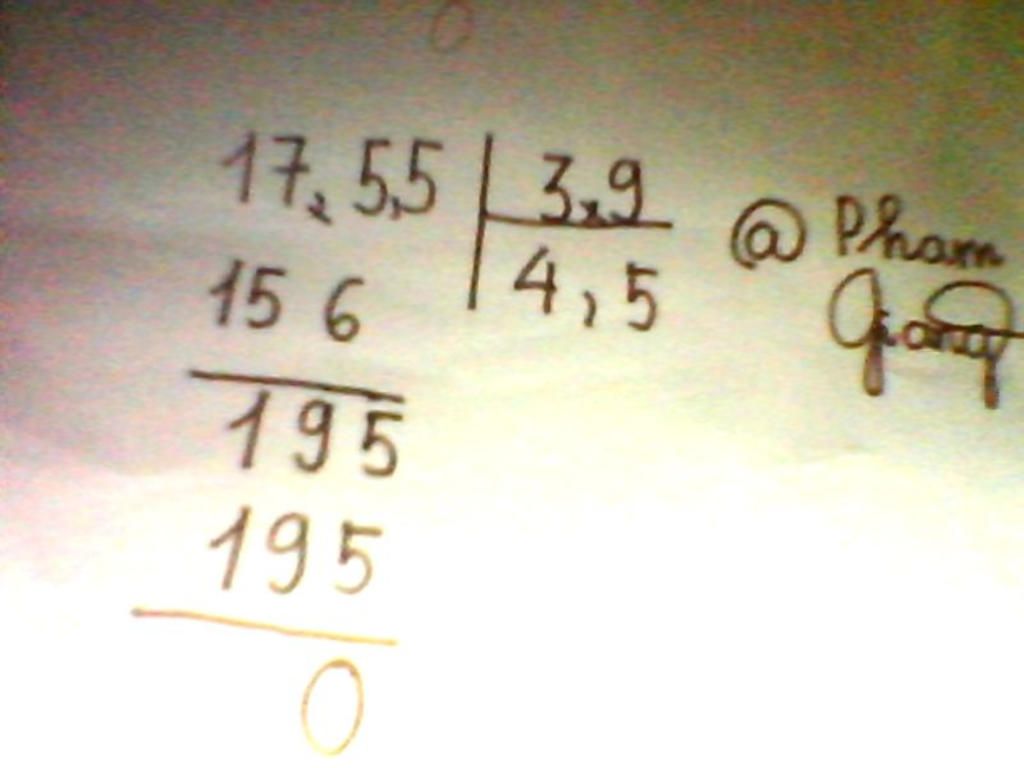 17,5,5 3,9
4,5
@ Pham
Giang
15 6
195
195
0